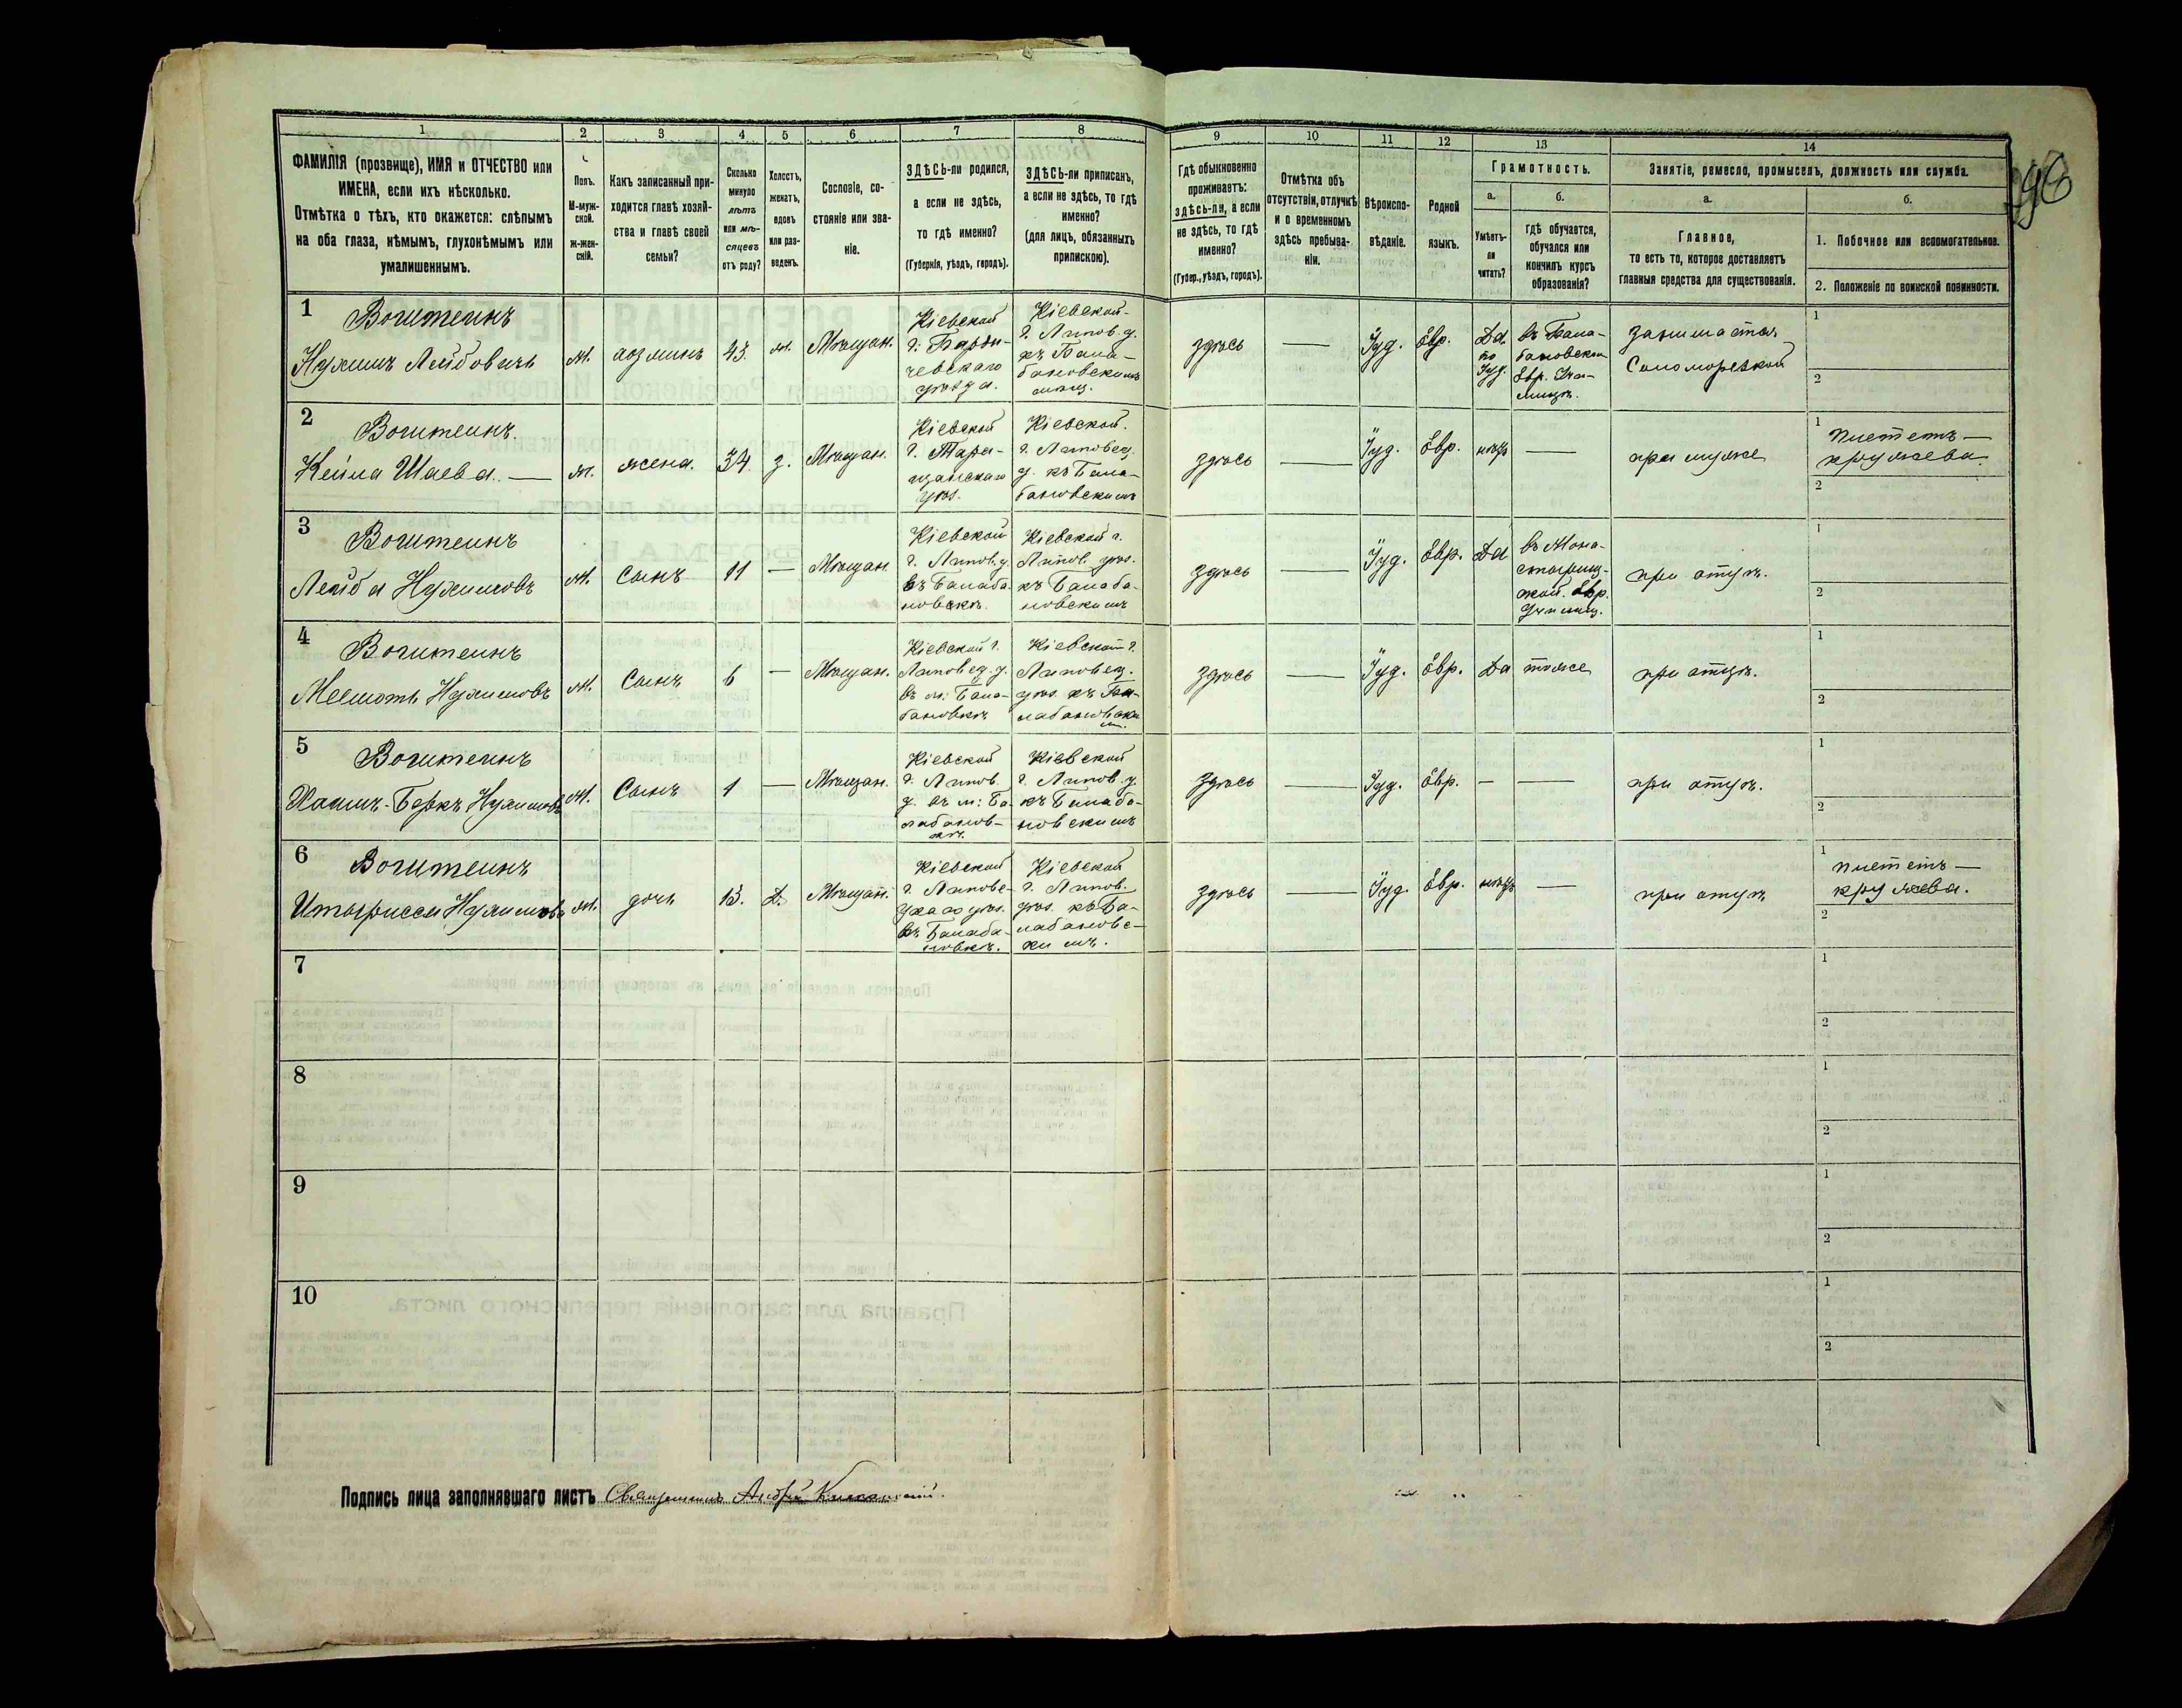 96
1
2
3
4
5
6
7
8
9
10
11
12
13
14
ФАМИЛІЯ (прозвище), ИМЯ и ОТЧЕСТВО или
ИМЕНА, если ихъ нѣсколько.
Отмѣтка о тѣхъ, кто окажется: слѣпымъ
на оба глаза, нѣмымъ, глухонѣмымъ или
умалишеннымъ.
Полъ.
М-муж-
ской.
ж-жен-
скій.
Какъ записанный при-
ходится главѣ хозяй-
ства и главѣ своей
семьи?
Сколько
минуло
лѣтъ
или мѣ-
сяцевъ
отъ роду?
Холостъ,
женатъ,
вдовъ
или раз-
веденъ.
Сословіе, со-
стояніе или зва-
ніе.
ЗДѢСЬ-ли родился,
а если не здѣсь,
то гдѣ именно?
(Губернія, уѣздъ, городъ).
ЗДѢСЬ-ли приписанъ,
а если не здѣсь, то гдѣ
именно?
(для лицъ, обязанныхъ
припискою).
Гдѣ обыкновенно
проживаетъ:
здѣсь-ли, а если
не здѣсь, то гдѣ
именно?
(Губер., уѣздъ, городъ).
Отмѣтка объ
отсутствіи, отлучкѣ
и о временномъ
здѣсь пребыва-
ніи.
Вѣроиспо-
вѣданіе.
Родной
языкъ.
Грамотность.
а.
Умѣетъ-
ли
читать?
б.
гдѣ обучается,
обучался или
кончилъ курсъ
образованія?
Занятіе, ремесло, промыселъ, должность или служба.
а.
Главное,
то есть то, которое доставляетъ
главныя средства для существованія.
б.
1. Побочное или вспомогательное.
2. Положеніе по воинской повинности.
1
Нухимъ Лейбовичъ
м.
хозяинъ
43.
ж.
Мѣщан.
Кіевской
г. Берди-
чевскаго
уѣзда.
Кіевской
г. Липов. у.
къ Бала-
бановскимъ
мѣщ.
здѣсь
—
Іуд.
Евр.
Да
по
Іуд.
въ Бала-
бановском
Евр. Учи-
лищѣ.
занимается
1
2
2
Кейла Шаева —
ж.
жена.
34
з.
Мѣщан.
Кіевской
г. Тара-
щанскаго
уѣз.
Кіевской.
г. Липовец.
у. къ Бала-
бановскимъ
здѣсь
—
Іуд.
Евр.
нѣтъ
—
при мужѣ
1
плететъ —
кружева.
2
3
Лейба Нухимовъ
м.
сынъ
11
—
Мѣщан.
Кіевской
г. Липов. у.
въ Балаба-
новкѣ.
Кіевской г.
Липов. уѣз.
къ Балаба-
новскимъ
здѣсь
—
Іуд.
Евр.
Да
въ Мона-
стырищ-
ской. Евр.
Училищ.
при отцѣ.
1
2
4
м.
Сынъ
6
—
Мѣщан.
Кіевской г.
Липовец. у.
въ м. Бала-
бановкѣ
Кіевской г.
Липовец.
уѣз. къ Ба-
лабановски
м.
здѣсь
—
Іуд.
Евр.
Да
тоже
при отцѣ.
1
2
5
м.
Сынъ
1
—
Мѣщан.
Кіевской
г. Липов.
у. въ м. Ба-
лабанов-
кѣ.
Кіевской
г. Липов. у.
къ Балаба-
новскимъ
здѣсь
—
Іуд.
Евр.
—
—
при отцѣ.
1
2
6
ж.
дочь
13.
Д.
Мѣщан.
Кіевской
г. Липове-
цкаго уѣз.
въ Балаба-
новкѣ.
Кіевской
г. Липов.
уѣз. къ Ба-
лабановс-
кимъ.
здѣсь
—
Іуд.
Евр.
нѣтъ
—
при отцѣ
1
плететъ —
кружева.
2
7
1
2
8
1
2
9
1
2
10
1
2
Подпись лица заполнявшаго листъ Священникъ Андрей